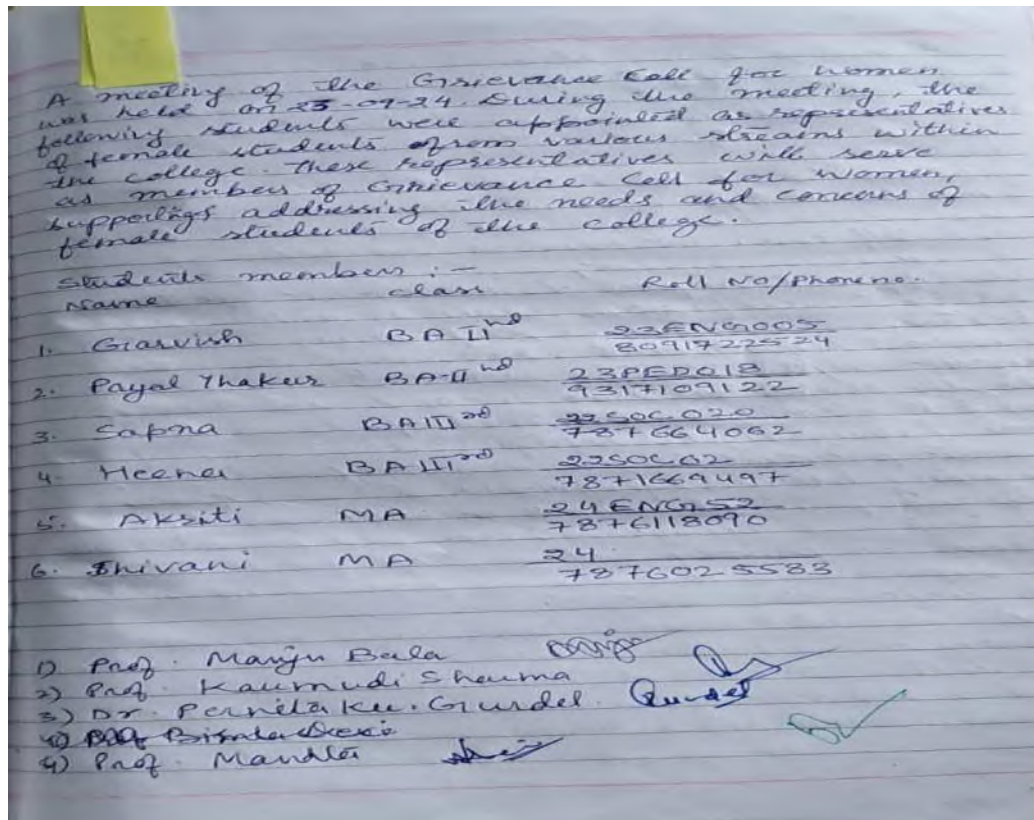 A meeting of the Grievance Cell for women
was held on 25-09-24. During the meeting, the
following students were appointed as representatives
of female students from various streams within
the college. These representatives will serve
as members of Grievance Cell for Women,
addressing the needs and concerns of
female students of the college.
Students members :-
Name class Roll No/Phone no.
1. Garvish BA IInd 22ENG005
8091722524
2. Payal Thakur BA-IInd 23PED018
9317109122
3. Sapna BA IIIrd 22SOC020
787664062
4. Heena BA IIIrd 22SOC62
7871669497
5. Aksiti MA 24ENG52
7876118090
6. Shivani MA 24
7876025583
1) Prof. Manju Bala
2) Prof. Kaumudi Sharma
3) Dr. Gurdel Gurdel
4) Prof. Mandla